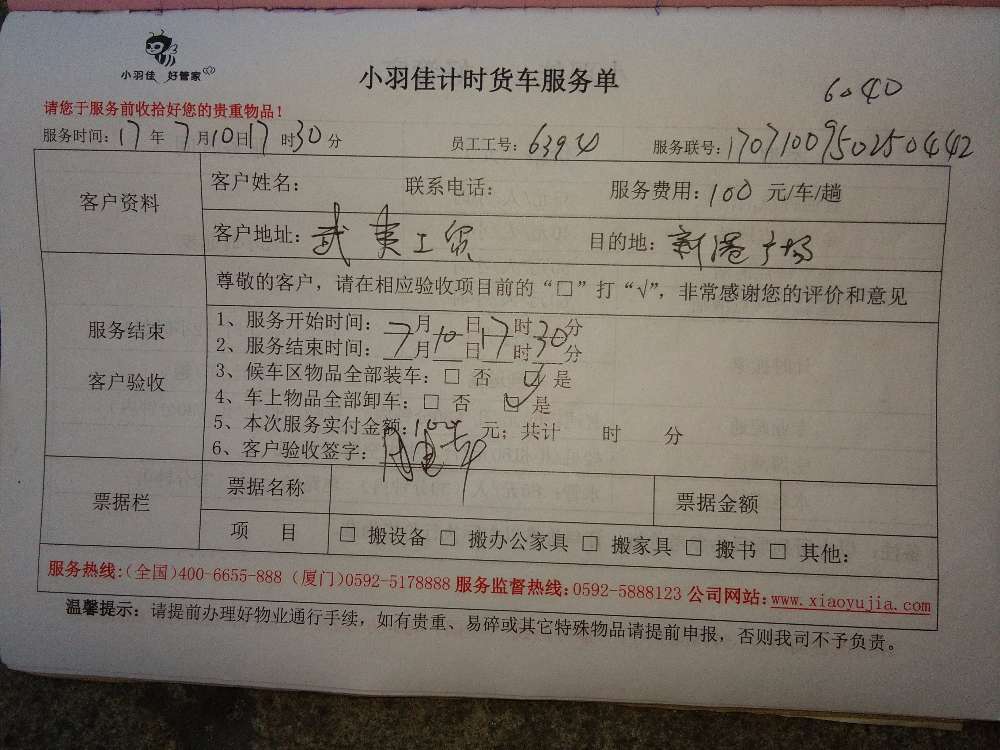 小羽佳 好管家
小羽佳计时货车服务单
6040
请您于服务前收拾好您的贵重物品！
服务时间：17年7月10日17时30分 员工工号：63940 服务联号：1707100950250442
客户资料
客户姓名： 联系电话： 服务费用：100 元/车/趟
客户地址：武夷工贸 目的地：新港广场
服务结束
客户验收
尊敬的客户，请在相应验收项目前的“□”打“√”，非常感谢您的评价和意见
1、服务开始时间：7月10日17时30分
2、服务结束时间：__月__日__时__分
3、候车区物品全部装车：□ 否 ☑ 是
4、车上物品全部卸车：□ 否 ☑ 是
5、本次服务实付金额：100 元；共计 时 分
6、客户验收签字：
票据栏
票据名称 票据金额
项 目 □ 搬设备 □ 搬办公家具 □ 搬家具 □ 搬书 □ 其他：
服务热线：(全国)400-6655-888 (厦门)0592-5178888 服务监督热线：0592-5888123 公司网站：www.xiaoyujia.com
温馨提示：请提前办理好物业通行手续，如有贵重、易碎或其它特殊物品请提前申报，否则我司不予负责。